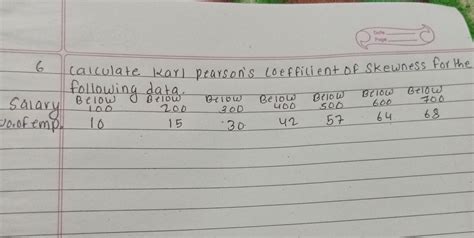 Date
Page
6 Calculate Karl Pearson's Coefficient of Skewness for the
following data.
Salary Below 100 Below 200 Below 300 Below 400 Below 500 Below 600 Below 700
No.of emp. 10 15 30 42 57 64 68